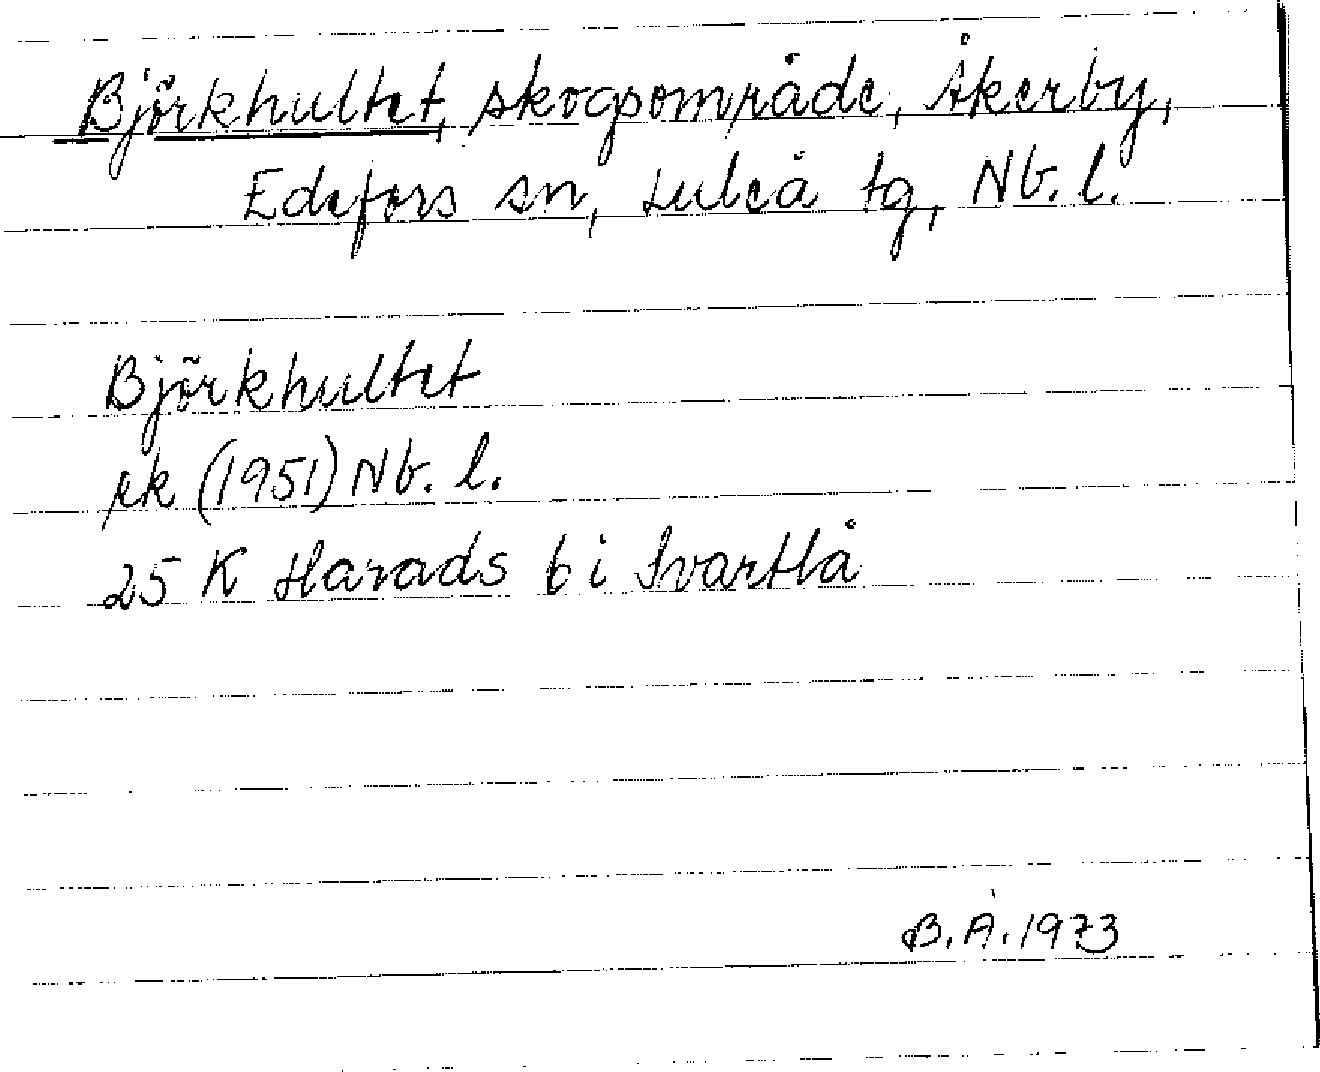 Björkhultet, skogsområde, Åkerby,
Edefors sn, Luleå tg, Nb. l.
Björkhultet
ek (1951) Nb. l.
25 K Harads 6 i Svartlå
B. Å. 1973